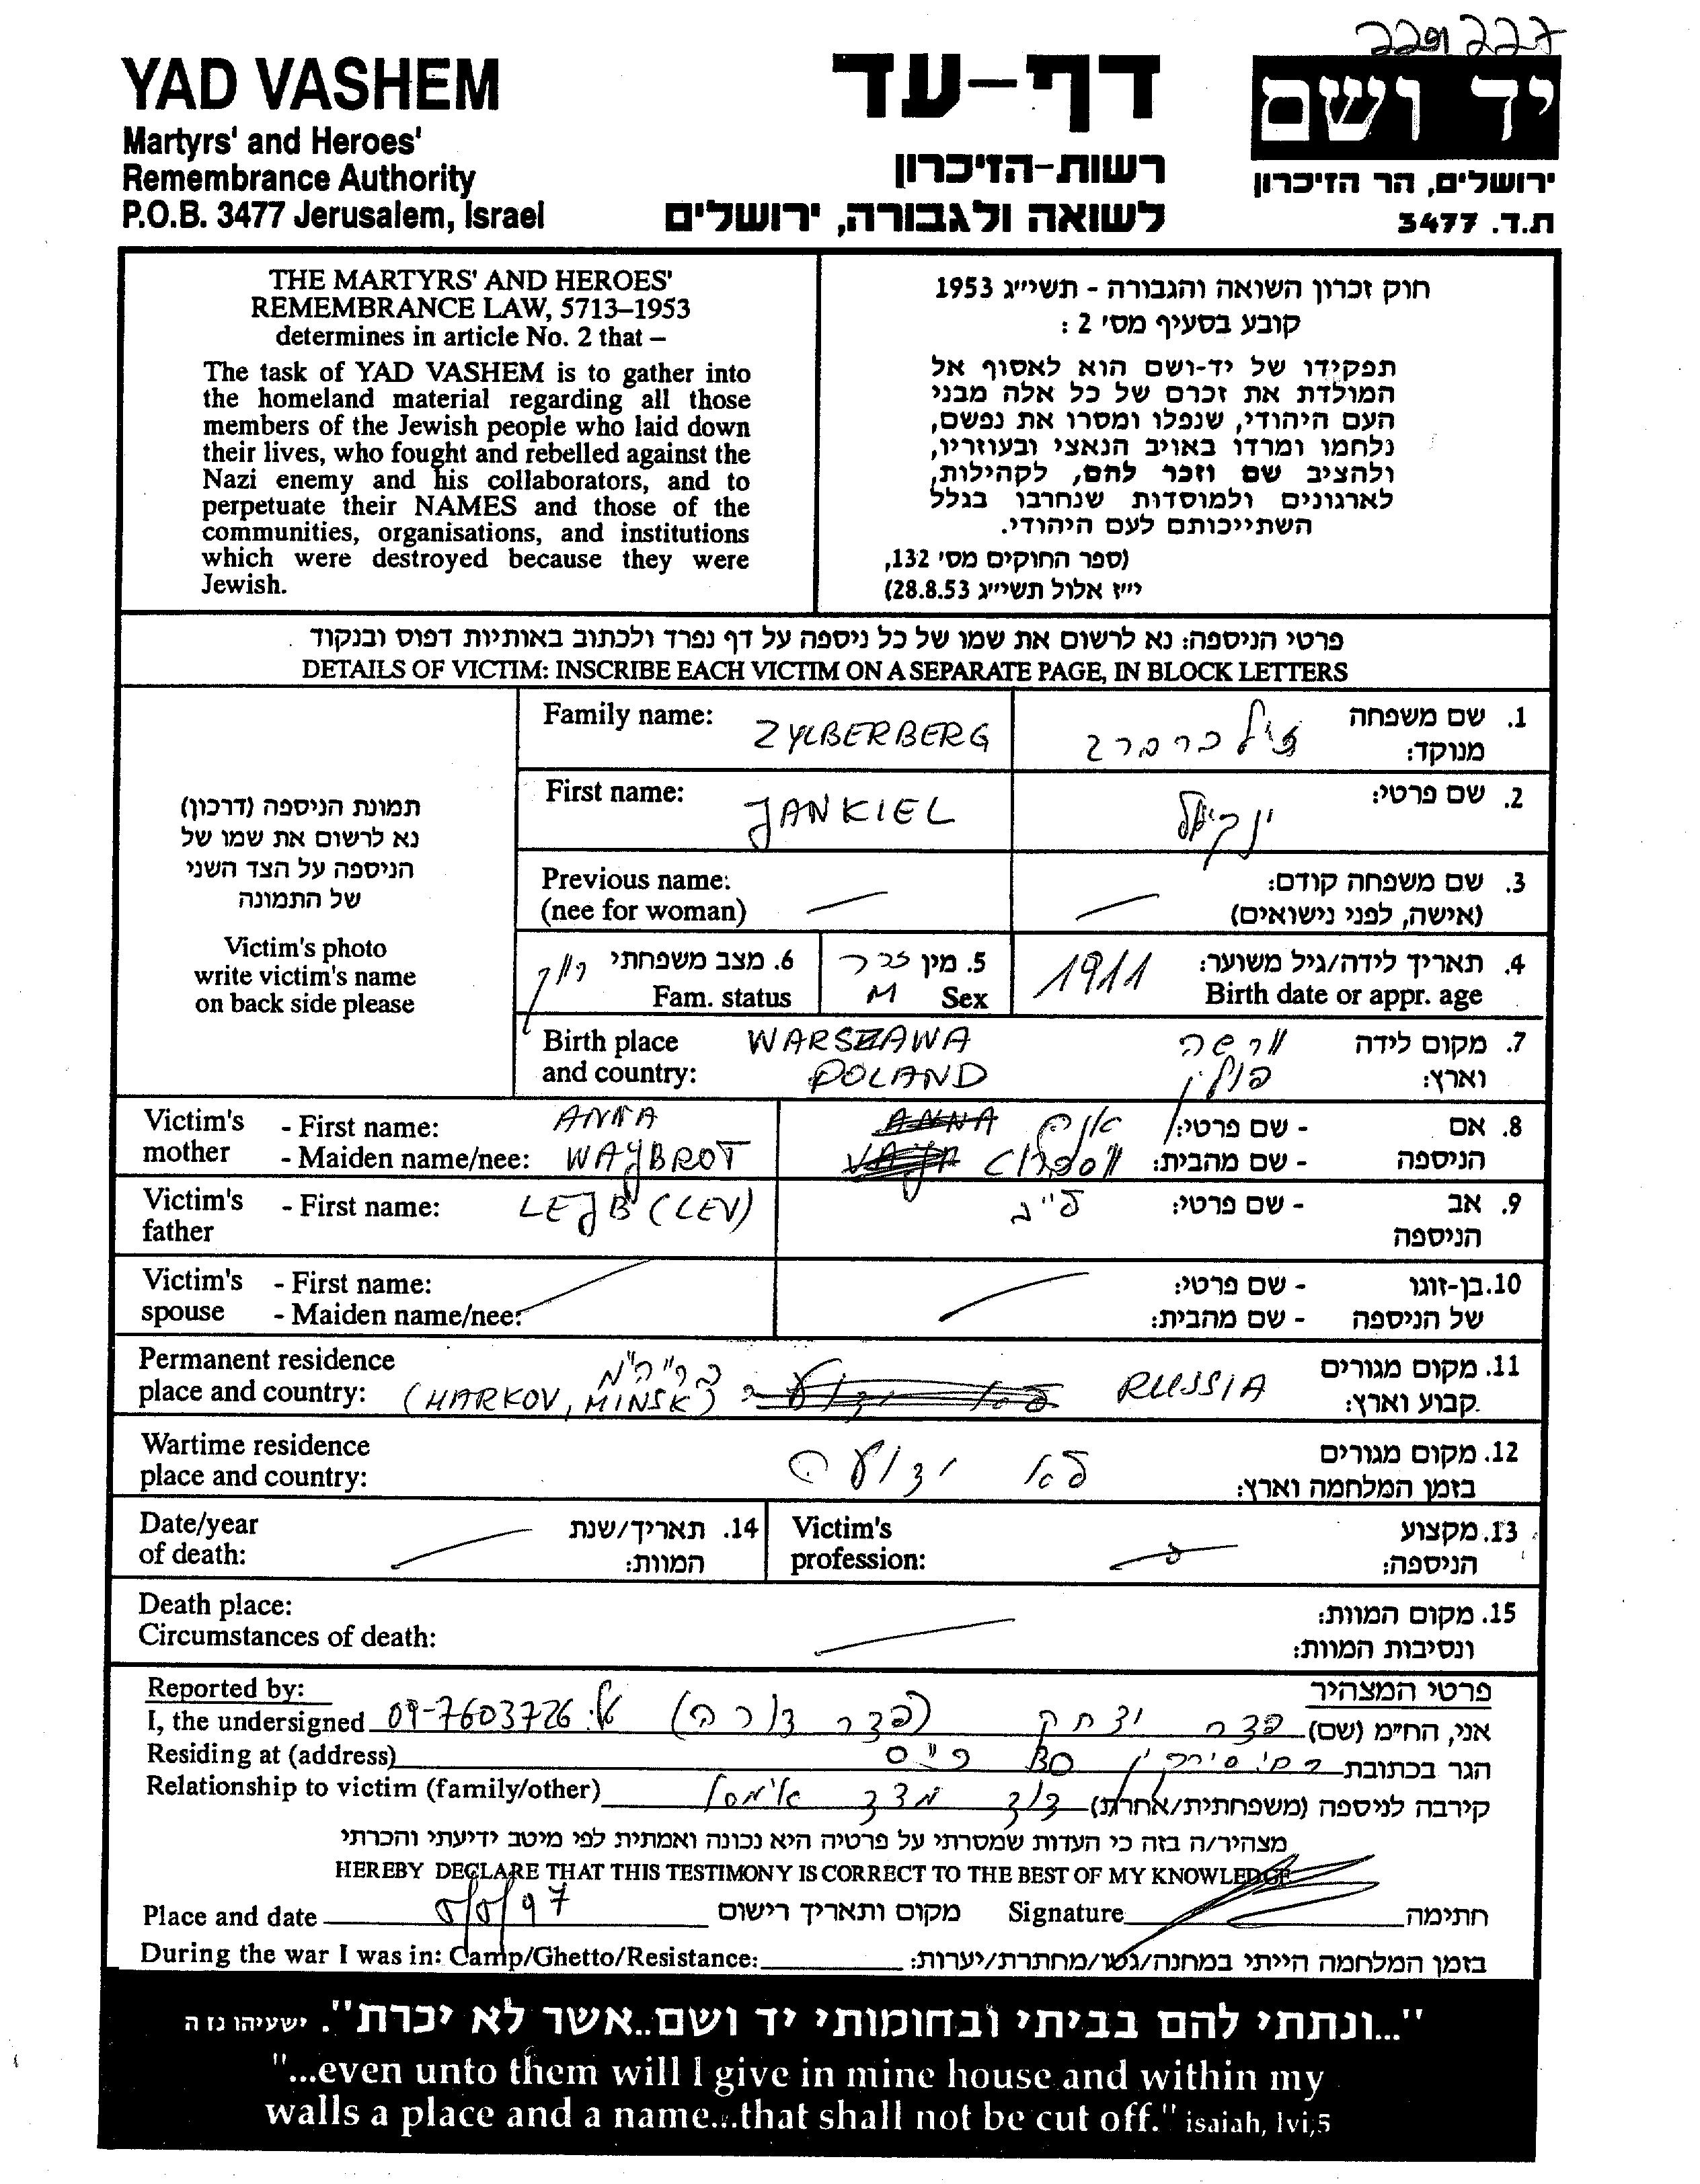 229227
YAD VASHEM
Martyrs' and Heroes'
Remembrance Authority
P.O.B. 3477 Jerusalem, Israel
דף-עד
רשות-הזיכרון
לשואה ולגבורה, ירושלים
יד ושם
ירושלים, הר הזיכרון
ת.ד. 3477
THE MARTYRS' AND HEROES'
REMEMBRANCE LAW, 5713–1953
determines in article No. 2 that –
The task of YAD VASHEM is to gather into
the homeland material regarding all those
members of the Jewish people who laid down
their lives, who fought and rebelled against the
Nazi enemy and his collaborators, and to
perpetuate their NAMES and those of the
communities, organisations, and institutions
which were destroyed because they were
Jewish.
חוק זכרון השואה והגבורה - תשי״ג 1953
קובע בסעיף מס׳ 2 :
תפקידו של יד-ושם הוא לאסוף אל
המולדת את זכרם של כל אלה מבני
העם היהודי, שנפלו ומסרו את נפשם,
נלחמו ומרדו באויב הנאצי ובעוזריו,
ולהציב שם וזכר להם, לקהילות,
לארגונים ולמוסדות שנחרבו בגלל
השתייכותם לעם היהודי.
(ספר החוקים מס׳ 132,
י״ז אלול תשי״ג 28.8.53)
פרטי הניספה: נא לרשום את שמו של כל ניספה על דף נפרד ולכתוב באותיות דפוס ובנקוד .
DETAILS OF VICTIM: INSCRIBE EACH VICTIM ON A SEPARATE PAGE, IN BLOCK LETTERS
תמונת הניספה (דרכון)
נא לרשום את שמו של
הניספה על הצד השני
של התמונה
Victim's photo
write victim's name
on back side please
Family name: ZYLBERBERG זילברברג 1. שם משפחה
מנוקד:
First name: JANKIEL ינקיאל 2. שם פרטי:
Previous name: — — 3. שם משפחה קודם:
(nee for woman) (אישה, לפני נישואים)
רווק 6. מצב משפחתי זכר 5. מין 1911 4. תאריך לידה/גיל משוער:
Fam. status M Sex Birth date or appr. age
Birth place WARSZAWA ורשה 7. מקום לידה
and country: POLAND פולין וארץ:
Victim's - First name: ANNA אנה - שם פרטי: 8. אם
mother - Maiden name/nee: WAJBROT - שם מהבית: הניספה
Victim's - First name: LEJB (LEV) לייב - שם פרטי: 9. אב
father הניספה
Victim's - First name: - שם פרטי: 10. בן-זוגו
spouse - Maiden name/nee: - שם מהבית: של הניספה
Permanent residence ברה"מ 11. מקום מגורים
place and country: (HARKOV, MINSK) RUSSIA קבוע וארץ:
Wartime residence לא ידוע 12. מקום מגורים
place and country: בזמן המלחמה וארץ:
Date/year 14. תאריך/שנת Victim's 13. מקצוע
of death: המוות: profession: הניספה:
Death place: 15. מקום המוות:
Circumstances of death: ונסיבות המוות:
Reported by: פרטי המצהיר
I, the undersigned 09-7603726 אני, החי״מ (שם) פצר יצחק
Residing at (address) הגר בכתובת רח' סירקין 30
Relationship to victim (family/other) קירבה לניספה (משפחתית/אחרת) דוד מצד אימא
מצהיר/ה בזה כי העדות שמסרתי על פרטיה היא נכונה ואמתית לפי מיטב ידיעתי והכרתי
HEREBY DECLARE THAT THIS TESTIMONY IS CORRECT TO THE BEST OF MY KNOWLEDGE
Place and date 5/5/97 מקום ותאריך רישום Signature חתימה
During the war I was in: Camp/Ghetto/Resistance: בזמן המלחמה הייתי במחנה/גטו/מחתרת/יערות:
"...ונתתי להם בביתי ובחומותי יד ושם..אשר לא יכרת". ישעיהו נז ה
"...even unto them will I give in mine house and within my
walls a place and a name...that shall not be cut off." isaiah, lvi,5